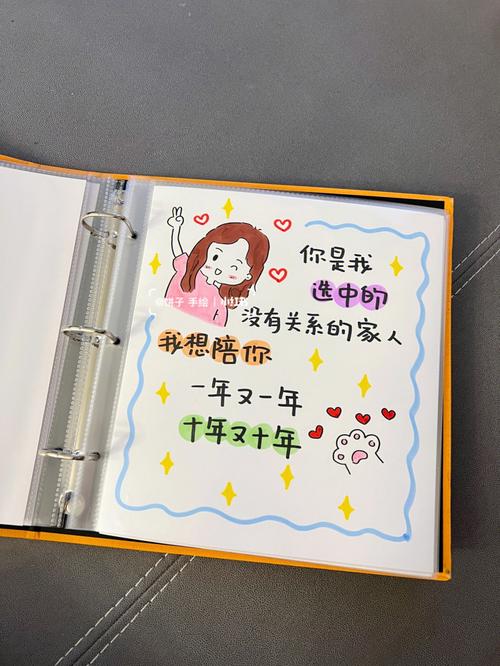 你是我
选中的
没有关系的家人
我想陪你
一年又一年
十年又十年
@饼子 手绘 | 小红书